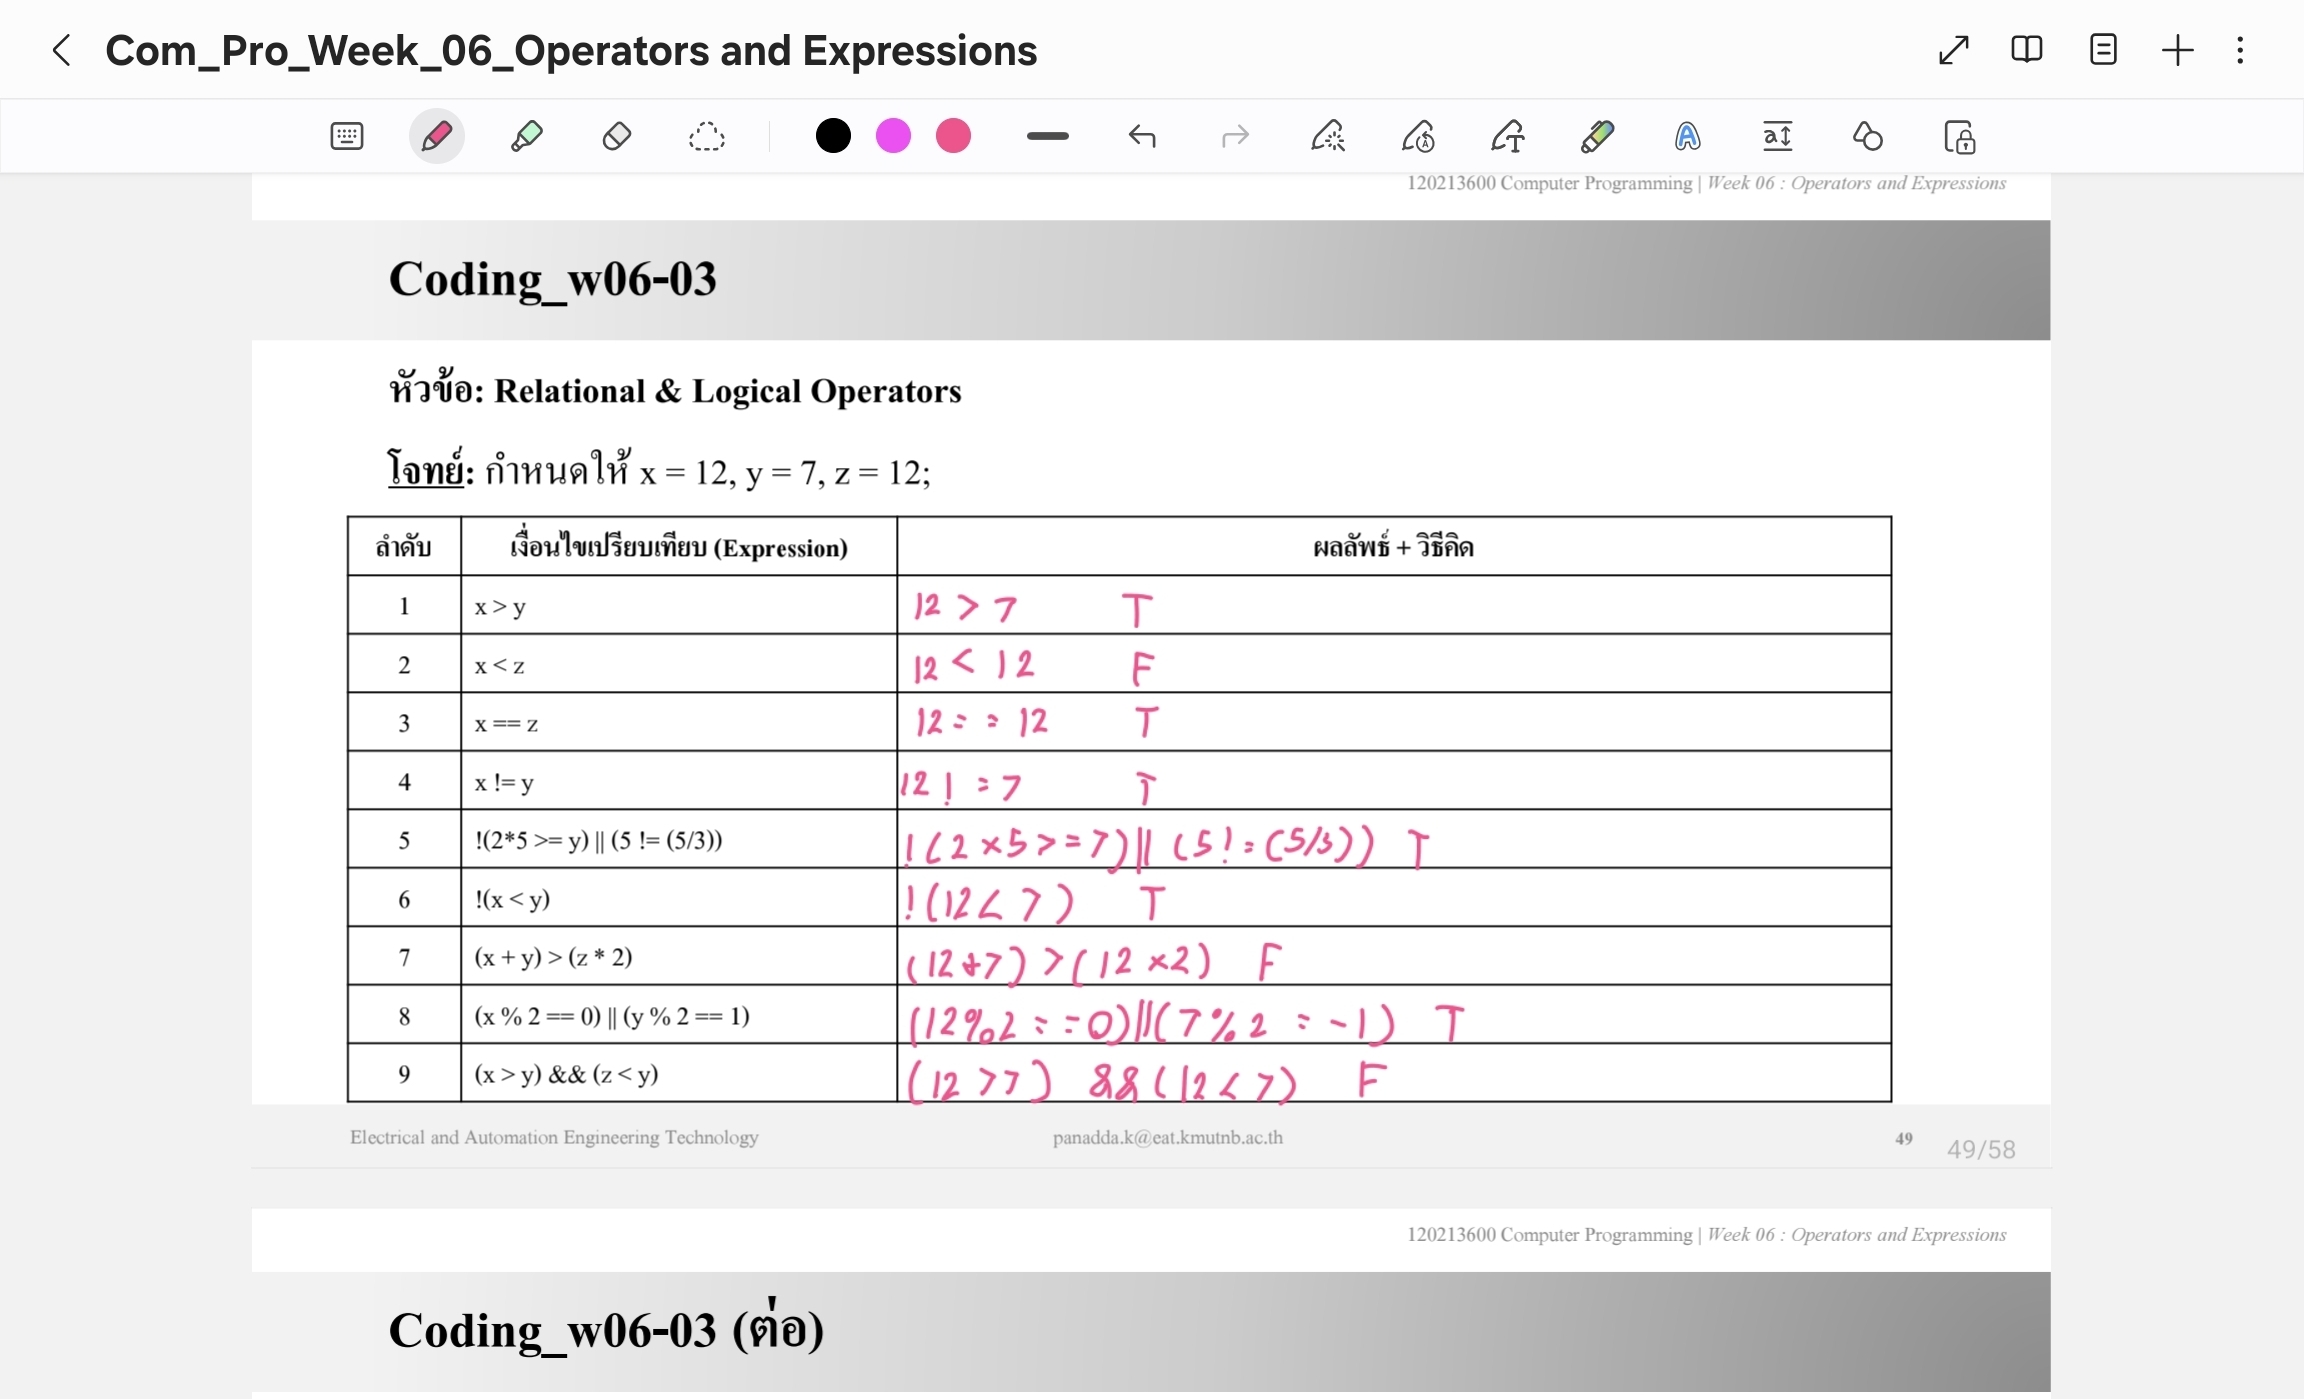 Com_Pro_Week_06_Operators and Expressions
120213600 Computer Programming | Week 06 : Operators and Expressions
Coding_w06-03
หัวข้อ: Relational & Logical Operators
โจทย์: กำหนดให้ x = 12, y = 7, z = 12;
ลำดับ เงื่อนไขเปรียบเทียบ (Expression) ผลลัพธ์ + วิธีคิด
1 x > y 12 > 7 T
2 x < z 12 < 12 F
3 x == z 12 == 12 T
4 x != y 12 != 7 T
5 !(2*5 >= y) || (5 != (5/3)) !(2×5>=7)|| (5!=(5/3)) T
6 !(x < y) !(12<7) T
7 (x + y) > (z * 2) (12+7)>(12×2) F
8 (x % 2 == 0) || (y % 2 == 1) (12%2==0)||(7%2==1) T
9 (x > y) && (z < y) (12>7) &&(12<7) F
Electrical and Automation Engineering Technology panadda.k@eat.kmutnb.ac.th 49 49/58
120213600 Computer Programming | Week 06 : Operators and Expressions
Coding_w06-03 (ต่อ)